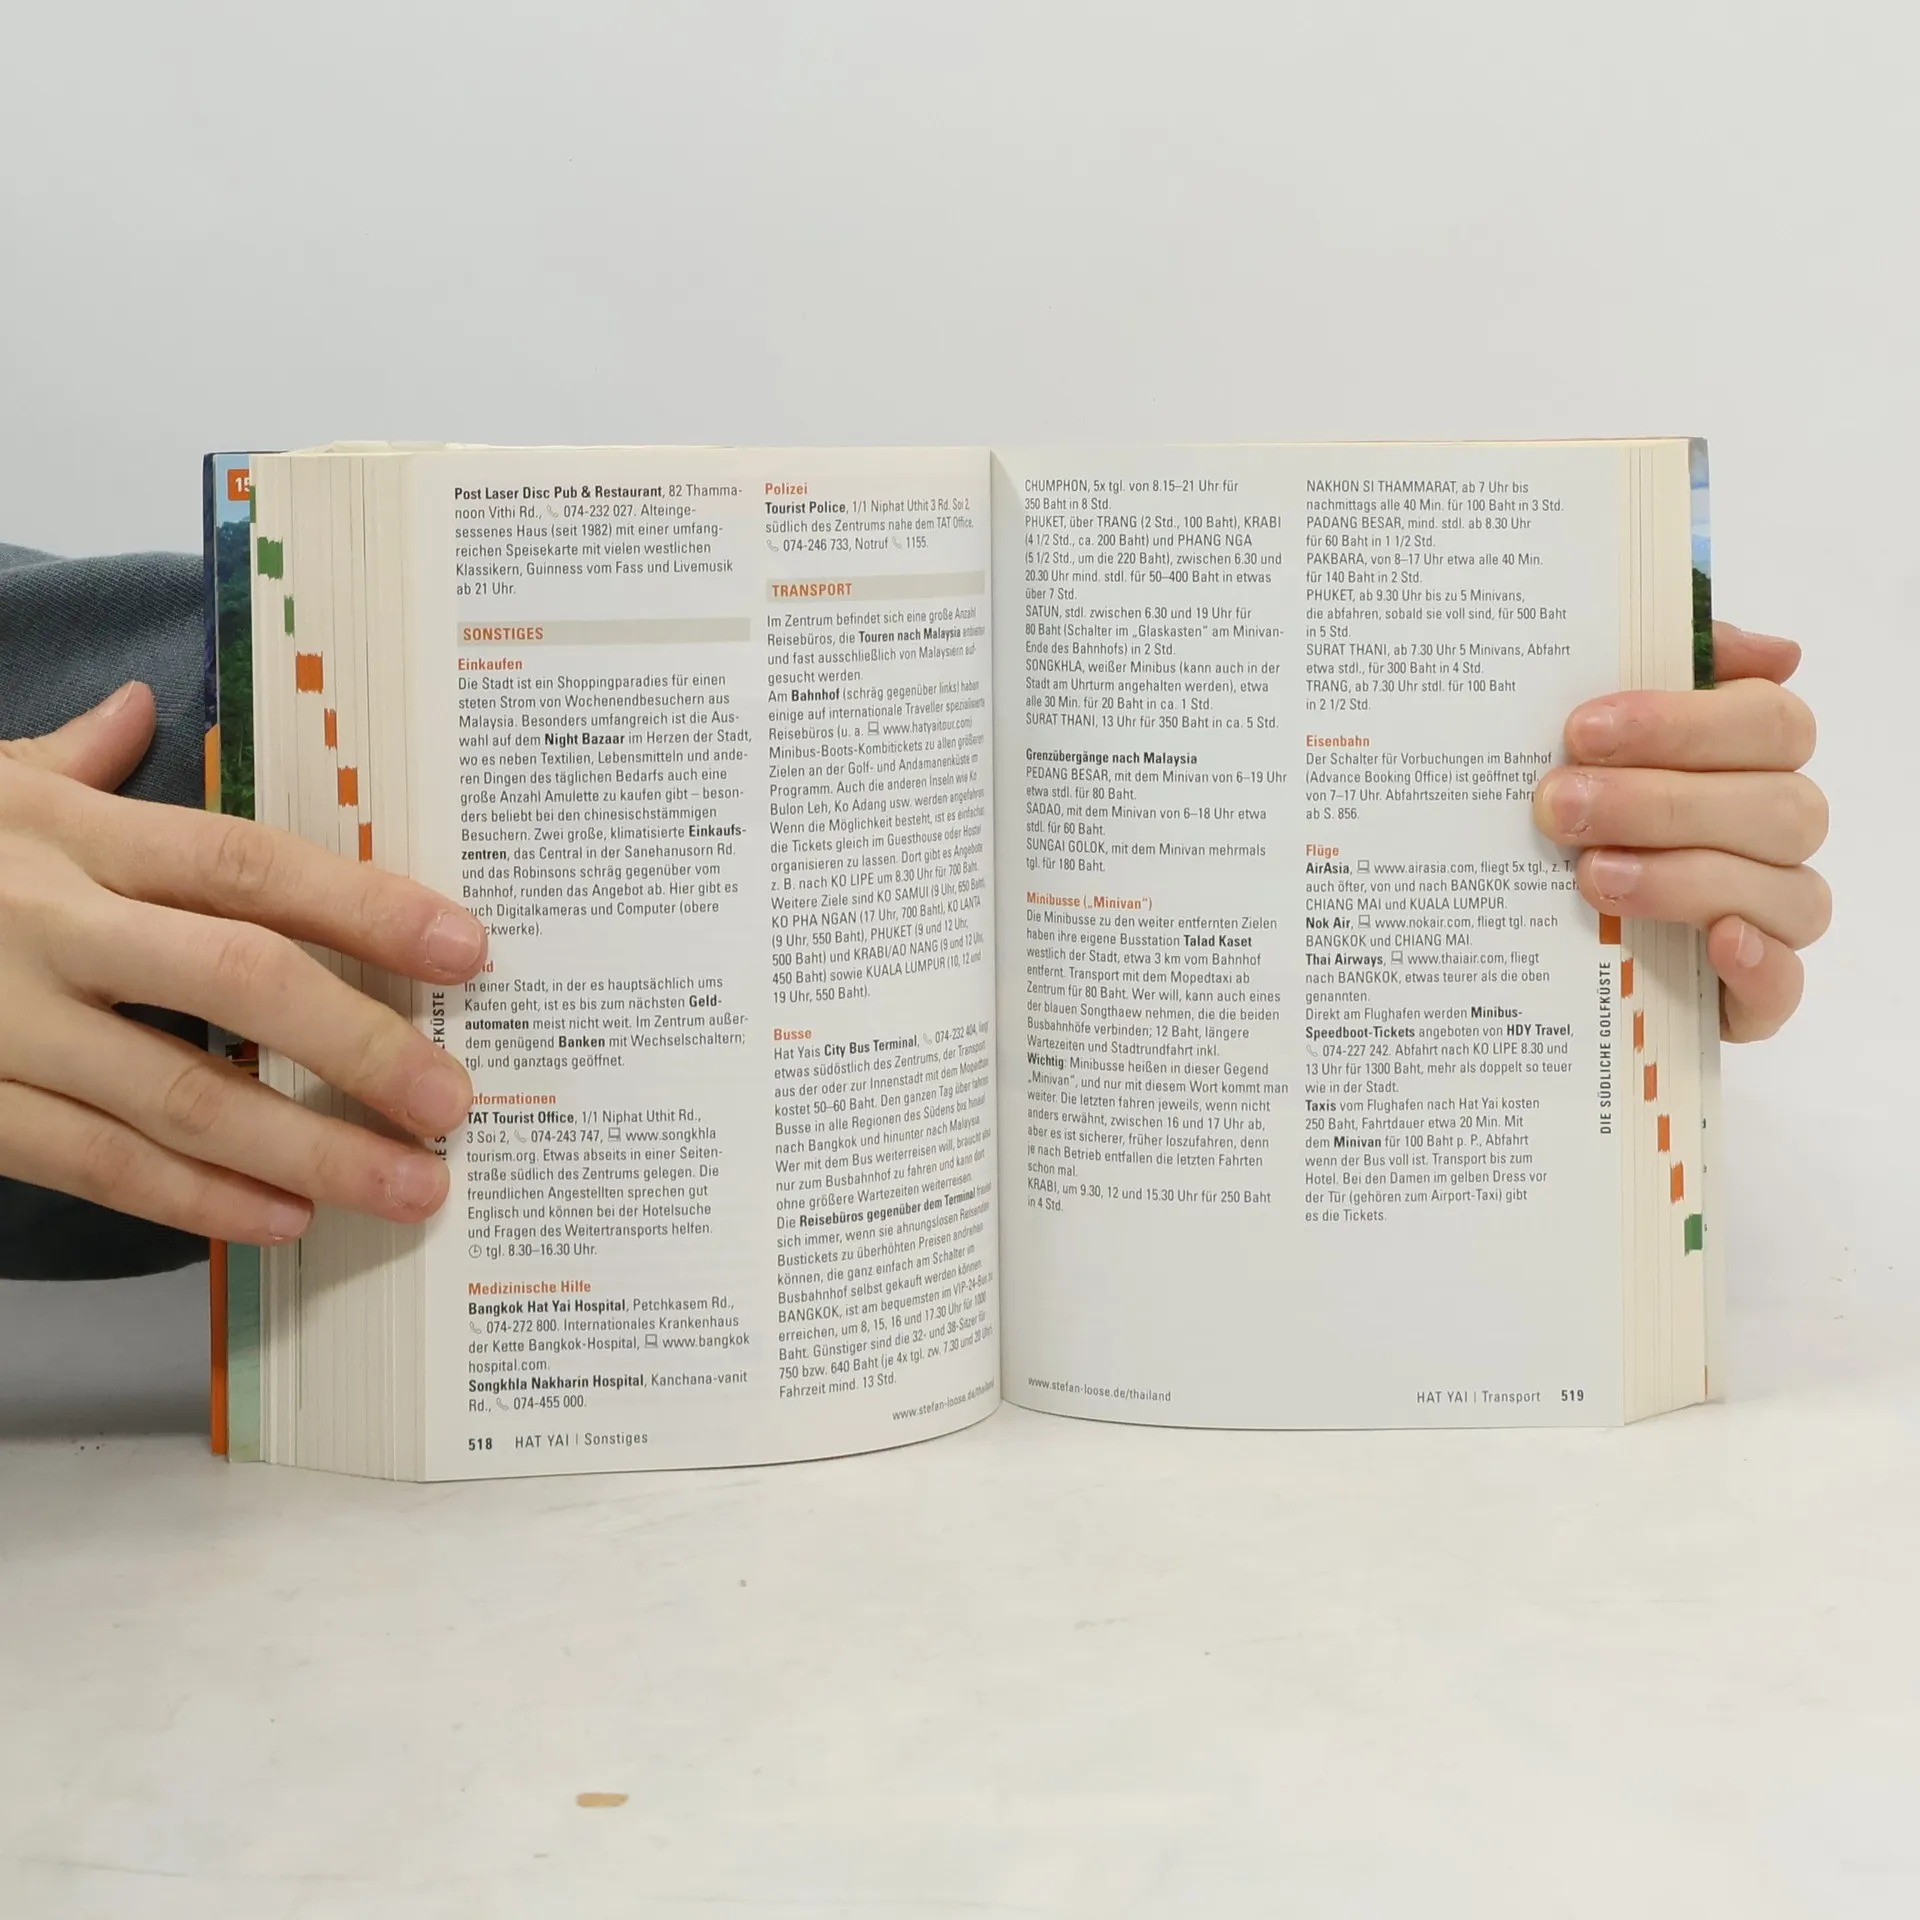 15
Post Laser Disc Pub & Restaurant, 82 Thamma-
noon Vithi Rd., 074-232 027. Alteinge-
sessenes Haus (seit 1982) mit einer umfang-
reichen Speisekarte mit vielen westlichen
Klassikern, Guinness vom Fass und Livemusik
ab 21 Uhr.
SONSTIGES
Einkaufen
Die Stadt ist ein Shoppingparadies für einen
steten Strom von Wochenendbesuchern aus
Malaysia. Besonders umfangreich ist die Aus-
wahl auf dem Night Bazaar im Herzen der Stadt,
wo es neben Textilien, Lebensmitteln und ande-
ren Dingen des täglichen Bedarfs auch eine
große Anzahl Amulette zu kaufen gibt – beson-
ders beliebt bei den chinesischstämmigen
Besuchern. Zwei große, klimatisierte Einkaufs-
zentren, das Central in der Sanehanusorn Rd.
und das Robinsons schräg gegenüber vom
Bahnhof, runden das Angebot ab. Hier gibt es
uch Digitalkameras und Computer (obere
ckwerke).
ld
In einer Stadt, in der es hauptsächlich ums
Kaufen geht, ist es bis zum nächsten Geld-
automaten meist nicht weit. Im Zentrum außer-
dem genügend Banken mit Wechselschaltern;
tgl. und ganztags geöffnet.
nformationen
TAT Tourist Office, 1/1 Niphat Uthit Rd.,
3 Soi 2, 074-243 747, www.songkhla
tourism.org. Etwas abseits in einer Seiten-
straße südlich des Zentrums gelegen. Die
freundlichen Angestellten sprechen gut
Englisch und können bei der Hotelsuche
und Fragen des Weitertransports helfen.
tgl. 8.30–16.30 Uhr.
Medizinische Hilfe
Bangkok Hat Yai Hospital, Petchkasem Rd.,
074-272 800. Internationales Krankenhaus
der Kette Bangkok-Hospital, www.bangkok
hospital.com.
Songkhla Nakharin Hospital, Kanchana-vanit
Rd., 074-455 000.
518 HAT YAI | Sonstiges
Polizei
Tourist Police, 1/1 Niphat Uthit 3 Rd. Soi 2,
südlich des Zentrums nahe dem TAT Office.
074-246 733, Notruf 1155.
TRANSPORT
Im Zentrum befindet sich eine große Anzahl
Reisebüros, die Touren nach Malaysia anbieten
und fast ausschließlich von Malaysiern auf-
gesucht werden.
Am Bahnhof (schräg gegenüber links) haben
einige auf internationale Traveller spezialisierte
Reisebüros (u. a. www.hatyaitour.com)
Minibus-Boots-Kombitickets zu allen größeren
Zielen an der Golf- und Andamanenküste im
Programm. Auch die anderen Inseln wie Ko
Bulon Leh, Ko Adang usw. werden angefahren.
Wenn die Möglichkeit besteht, ist es einfacher,
die Tickets gleich im Guesthouse oder Hostel
organisieren zu lassen. Dort gibt es Angebote
z. B. nach KO LIPE um 8.30 Uhr für 700 Baht.
Weitere Ziele sind KO SAMUI (9 Uhr, 650 Baht),
KO PHA NGAN (17 Uhr, 700 Baht), KO LANTA
(9 Uhr, 550 Baht), PHUKET (9 und 12 Uhr,
500 Baht) und KRABI/AO NANG (9 und 12 Uhr,
450 Baht) sowie KUALA LUMPUR (10, 12 und
19 Uhr, 550 Baht).
Busse
Hat Yais City Bus Terminal, 074-232 404, liegt
etwas südöstlich des Zentrums, der Transport
aus der oder zur Innenstadt mit dem Mopedtaxi
kostet 50–60 Baht. Den ganzen Tag über fahren
Busse in alle Regionen des Südens bis hinauf
nach Bangkok und hinunter nach Malaysia.
Wer mit dem Bus weiterreisen will, braucht also
nur zum Busbahnhof zu fahren und kann dort
ohne größere Wartezeiten weiterreisen.
Die Reisebüros gegenüber dem Terminal freuen
sich immer, wenn sie ahnungslosen Reisenden
Bustickets zu überhöhten Preisen andrehen
können, die ganz einfach am Schalter im
Busbahnhof selbst gekauft werden können.
BANGKOK, ist am bequemsten im VIP-24-Bus zu
erreichen, um 8, 15, 16 und 17.30 Uhr für 1000
Baht. Günstiger sind die 32- und 38-Sitzer für
750 bzw. 640 Baht (je 4x tgl. zw. 7.30 und 20 Uhr).
Fahrzeit mind. 13 Std.
www.stefan-loose.de/thailand
CHUMPHON, 5x tgl. von 8.15–21 Uhr für
350 Baht in 8 Std.
PHUKET, über TRANG (2 Std., 100 Baht), KRABI
(4 1/2 Std., ca. 200 Baht) und PHANG NGA
(5 1/2 Std., um die 220 Baht), zwischen 6.30 und
20.30 Uhr mind. stdl. für 50–400 Baht in etwas
über 7 Std.
SATUN, stdl. zwischen 6.30 und 19 Uhr für
80 Baht (Schalter im „Glaskasten“ am Minivan-
Ende des Bahnhofs) in 2 Std.
SONGKHLA, weißer Minibus (kann auch in der
Stadt am Uhrturm angehalten werden), etwa
alle 30 Min. für 20 Baht in ca. 1 Std.
SURAT THANI, 13 Uhr für 350 Baht in ca. 5 Std.
Grenzübergänge nach Malaysia
PEDANG BESAR, mit dem Minivan von 6–19 Uhr
etwa stdl. für 80 Baht.
SADAO, mit dem Minivan von 6–18 Uhr etwa
stdl. für 60 Baht.
SUNGAI GOLOK, mit dem Minivan mehrmals
tgl. für 180 Baht.
Minibusse („Minivan“)
Die Minibusse zu den weiter entfernten Zielen
haben ihre eigene Busstation Talad Kaset
westlich der Stadt, etwa 3 km vom Bahnhof
entfernt. Transport mit dem Mopedtaxi ab
Zentrum für 80 Baht. Wer will, kann auch eines
der blauen Songthaew nehmen, die die beiden
Busbahnhöfe verbinden; 12 Baht, längere
Wartezeiten und Stadtrundfahrt inkl.
Wichtig: Minibusse heißen in dieser Gegend
„Minivan“, und nur mit diesem Wort kommt man
weiter. Die letzten fahren jeweils, wenn nicht
anders erwähnt, zwischen 16 und 17 Uhr ab,
aber es ist sicherer, früher loszufahren, denn
je nach Betrieb entfallen die letzten Fahrten
schon mal.
KRABI, um 9.30, 12 und 15.30 Uhr für 250 Baht
in 4 Std.
www.stefan-loose.de/thailand
NAKHON SI THAMMARAT, ab 7 Uhr bis
nachmittags alle 40 Min. für 100 Baht in 3 Std.
PADANG BESAR, mind. stdl. ab 8.30 Uhr
für 60 Baht in 1 1/2 Std.
PAKBARA, von 8–17 Uhr etwa alle 40 Min.
für 140 Baht in 2 Std.
PHUKET, ab 9.30 Uhr bis zu 5 Minivans,
die abfahren, sobald sie voll sind, für 500 Baht
in 5 Std.
SURAT THANI, ab 7.30 Uhr 5 Minivans, Abfahrt
etwa stdl., für 300 Baht in 4 Std.
TRANG, ab 7.30 Uhr stdl. für 100 Baht
in 2 1/2 Std.
Eisenbahn
Der Schalter für Vorbuchungen im Bahnhof
(Advance Booking Office) ist geöffnet tgl.
von 7–17 Uhr. Abfahrtszeiten siehe Fahrp
ab S. 856.
Flüge
AirAsia, www.airasia.com, fliegt 5x tgl., z. T.
auch öfter, von und nach BANGKOK sowie nach
CHIANG MAI und KUALA LUMPUR.
Nok Air, www.nokair.com, fliegt tgl. nach
BANGKOK und CHIANG MAI.
Thai Airways, www.thaiair.com, fliegt
nach BANGKOK, etwas teurer als die oben
genannten.
Direkt am Flughafen werden Minibus-
Speedboot-Tickets angeboten von HDY Travel,
074-227 242. Abfahrt nach KO LIPE 8.30 und
13 Uhr für 1300 Baht, mehr als doppelt so teuer
wie in der Stadt.
Taxis vom Flughafen nach Hat Yai kosten
250 Baht, Fahrtdauer etwa 20 Min. Mit
dem Minivan für 100 Baht p. P., Abfahrt
wenn der Bus voll ist. Transport bis zum
Hotel. Bei den Damen im gelben Dress vor
der Tür (gehören zum Airport-Taxi) gibt
es die Tickets.
HAT YAI | Transport 519
DIE SÜDLICHE GOLFKÜSTE